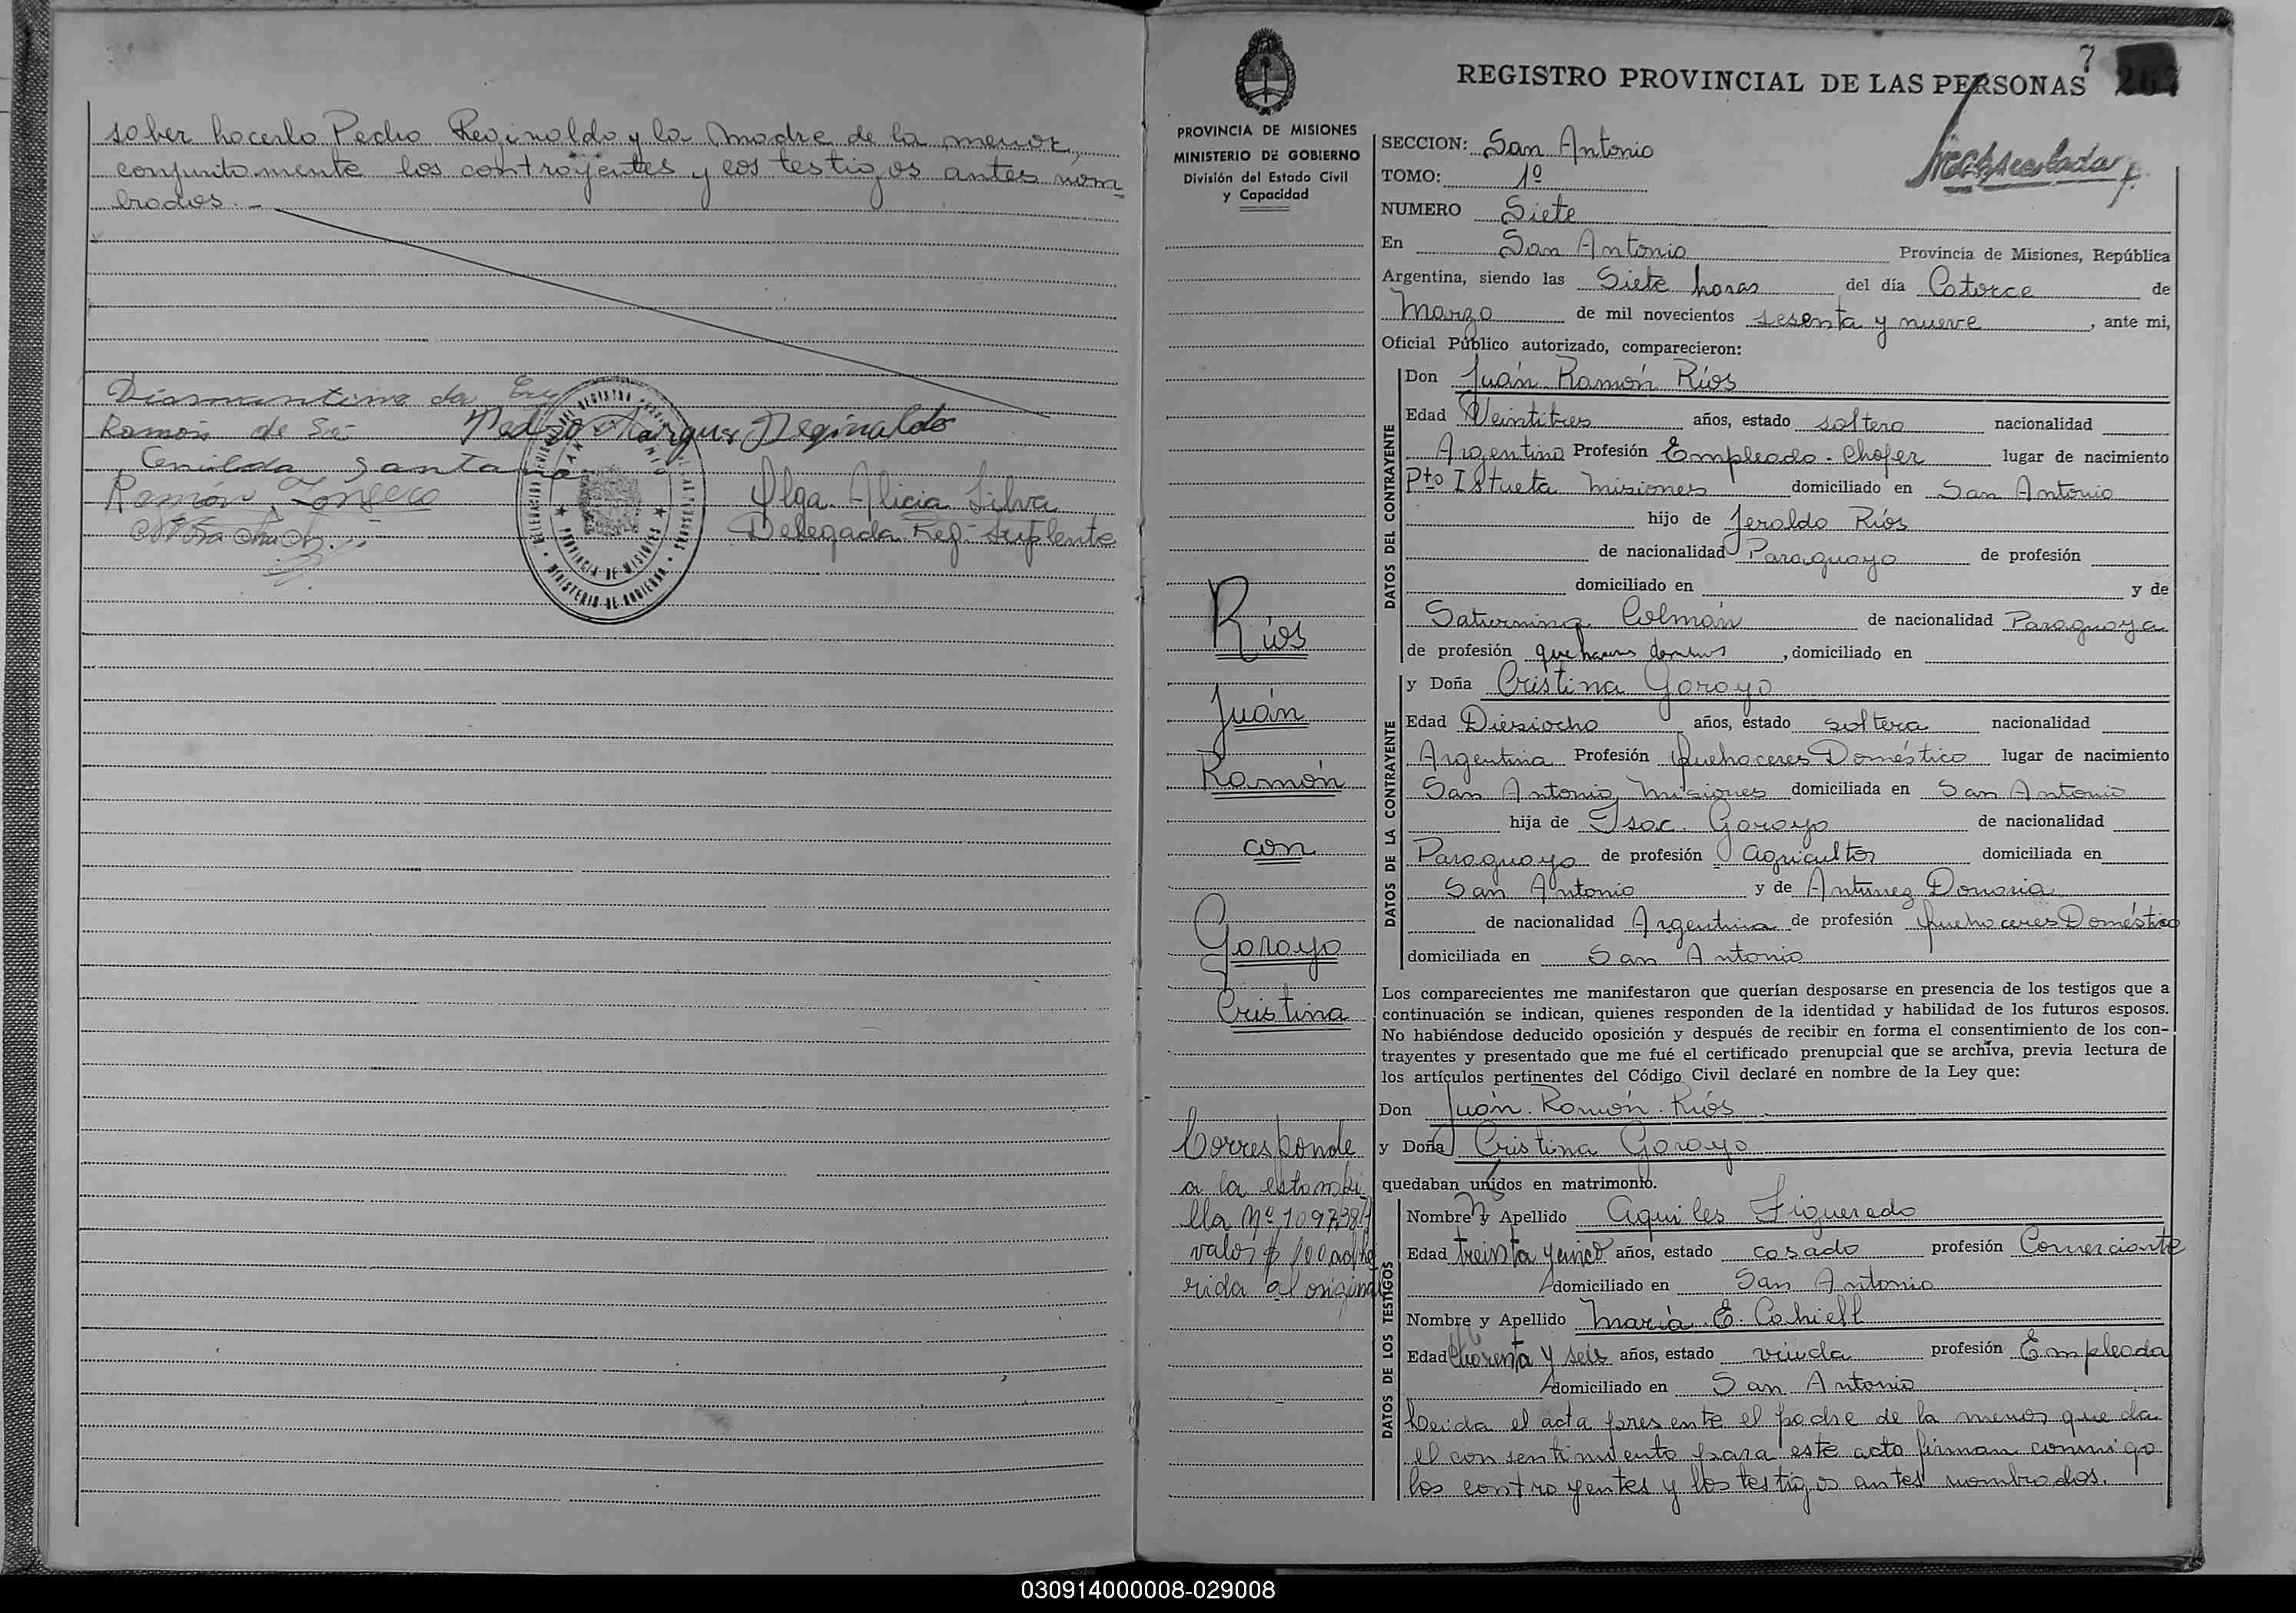 saber hacerlo Pedro Reginaldo y la madre de la menor,
conjuntamente los contrayentes y los testigos antes nom-
brados.-
Diamantina da
Ramón de Sá Pedro Reginaldo
Cenilda Santa
Ramón Fonseca Olga Alicia Silva
Delegada Reg. Suplente
PROVINCIA DE MISIONES
MINISTERIO DE GOBIERNO
7
REGISTRO PROVINCIAL DE LAS PERSONAS
267
PROVINCIA DE MISIONES
MINISTERIO DE GOBIERNO
División del Estado Civil
y Capacidad
SECCION: San Antonio
TOMO: 1º
NUMERO Siete
En San Antonio Provincia de Misiones, República
Argentina, siendo las Siete horas del día Catorce de
Marzo de mil novecientos sesenta y nueve, ante mi,
Oficial Público autorizado, comparecieron:
DATOS DEL CONTRAYENTE
Don Juán Ramón Ríos
Edad Veintitres años, estado soltero nacionalidad
Argentino Profesión Empleado - Chofer lugar de nacimiento
Pto Istueta Misiones domiciliado en San Antonio
hijo de Jeraldo Ríos
de nacionalidad Paraguayo de profesión
domiciliado en y de
Saturnina Colmán de nacionalidad Paraguaya
de profesión , domiciliado en
DATOS DE LA CONTRAYENTE
y Doña Cristina Garayo
Edad Diesiocho años, estado soltera nacionalidad
Argentina Profesión Quehaceres Doméstico lugar de nacimiento
San Antonio, Misiones domiciliada en San Antonio
hija de Isac. Garayo de nacionalidad
Paraguayo de profesión Agricultor domiciliada en
San Antonio y de Antunez Donaria
de nacionalidad Argentina de profesión Quehaceres Doméstico
domiciliada en San Antonio
Los comparecientes me manifestaron que querían desposarse en presencia de los testigos que a
continuación se indican, quienes responden de la identidad y habilidad de los futuros esposos.
No habiéndose deducido oposición y después de recibir en forma el consentimiento de los con-
trayentes y presentado que me fué el certificado prenupcial que se archiva, previa lectura de
los artículos pertinentes del Código Civil declaré en nombre de la Ley que:
Don Juán. Ramón. Ríos
y Doña Cristina Garayo
quedaban unidos en matrimonio.
DATOS DE LOS TESTIGOS
Nombre y Apellido Aquiles Figueredo
Edad treinta y cinco años, estado casado profesión Comerciante
domiciliado en San Antonio
Nombre y Apellido María. E. Cahiell
Edad y seis años, estado viuda profesión Empleada
domiciliado en San Antonio
Leida el acta presente el padre de la menor que da
el consentimiento para este acto firman conmigo
los contrayentes y los testigos antes nombrados.
Ríos
Juán
Ramón
con
Garayo
Cristina
Corresponde
a la estampi
lla Nº
valor $ 100 adhe
rida al original
030914000008-029008